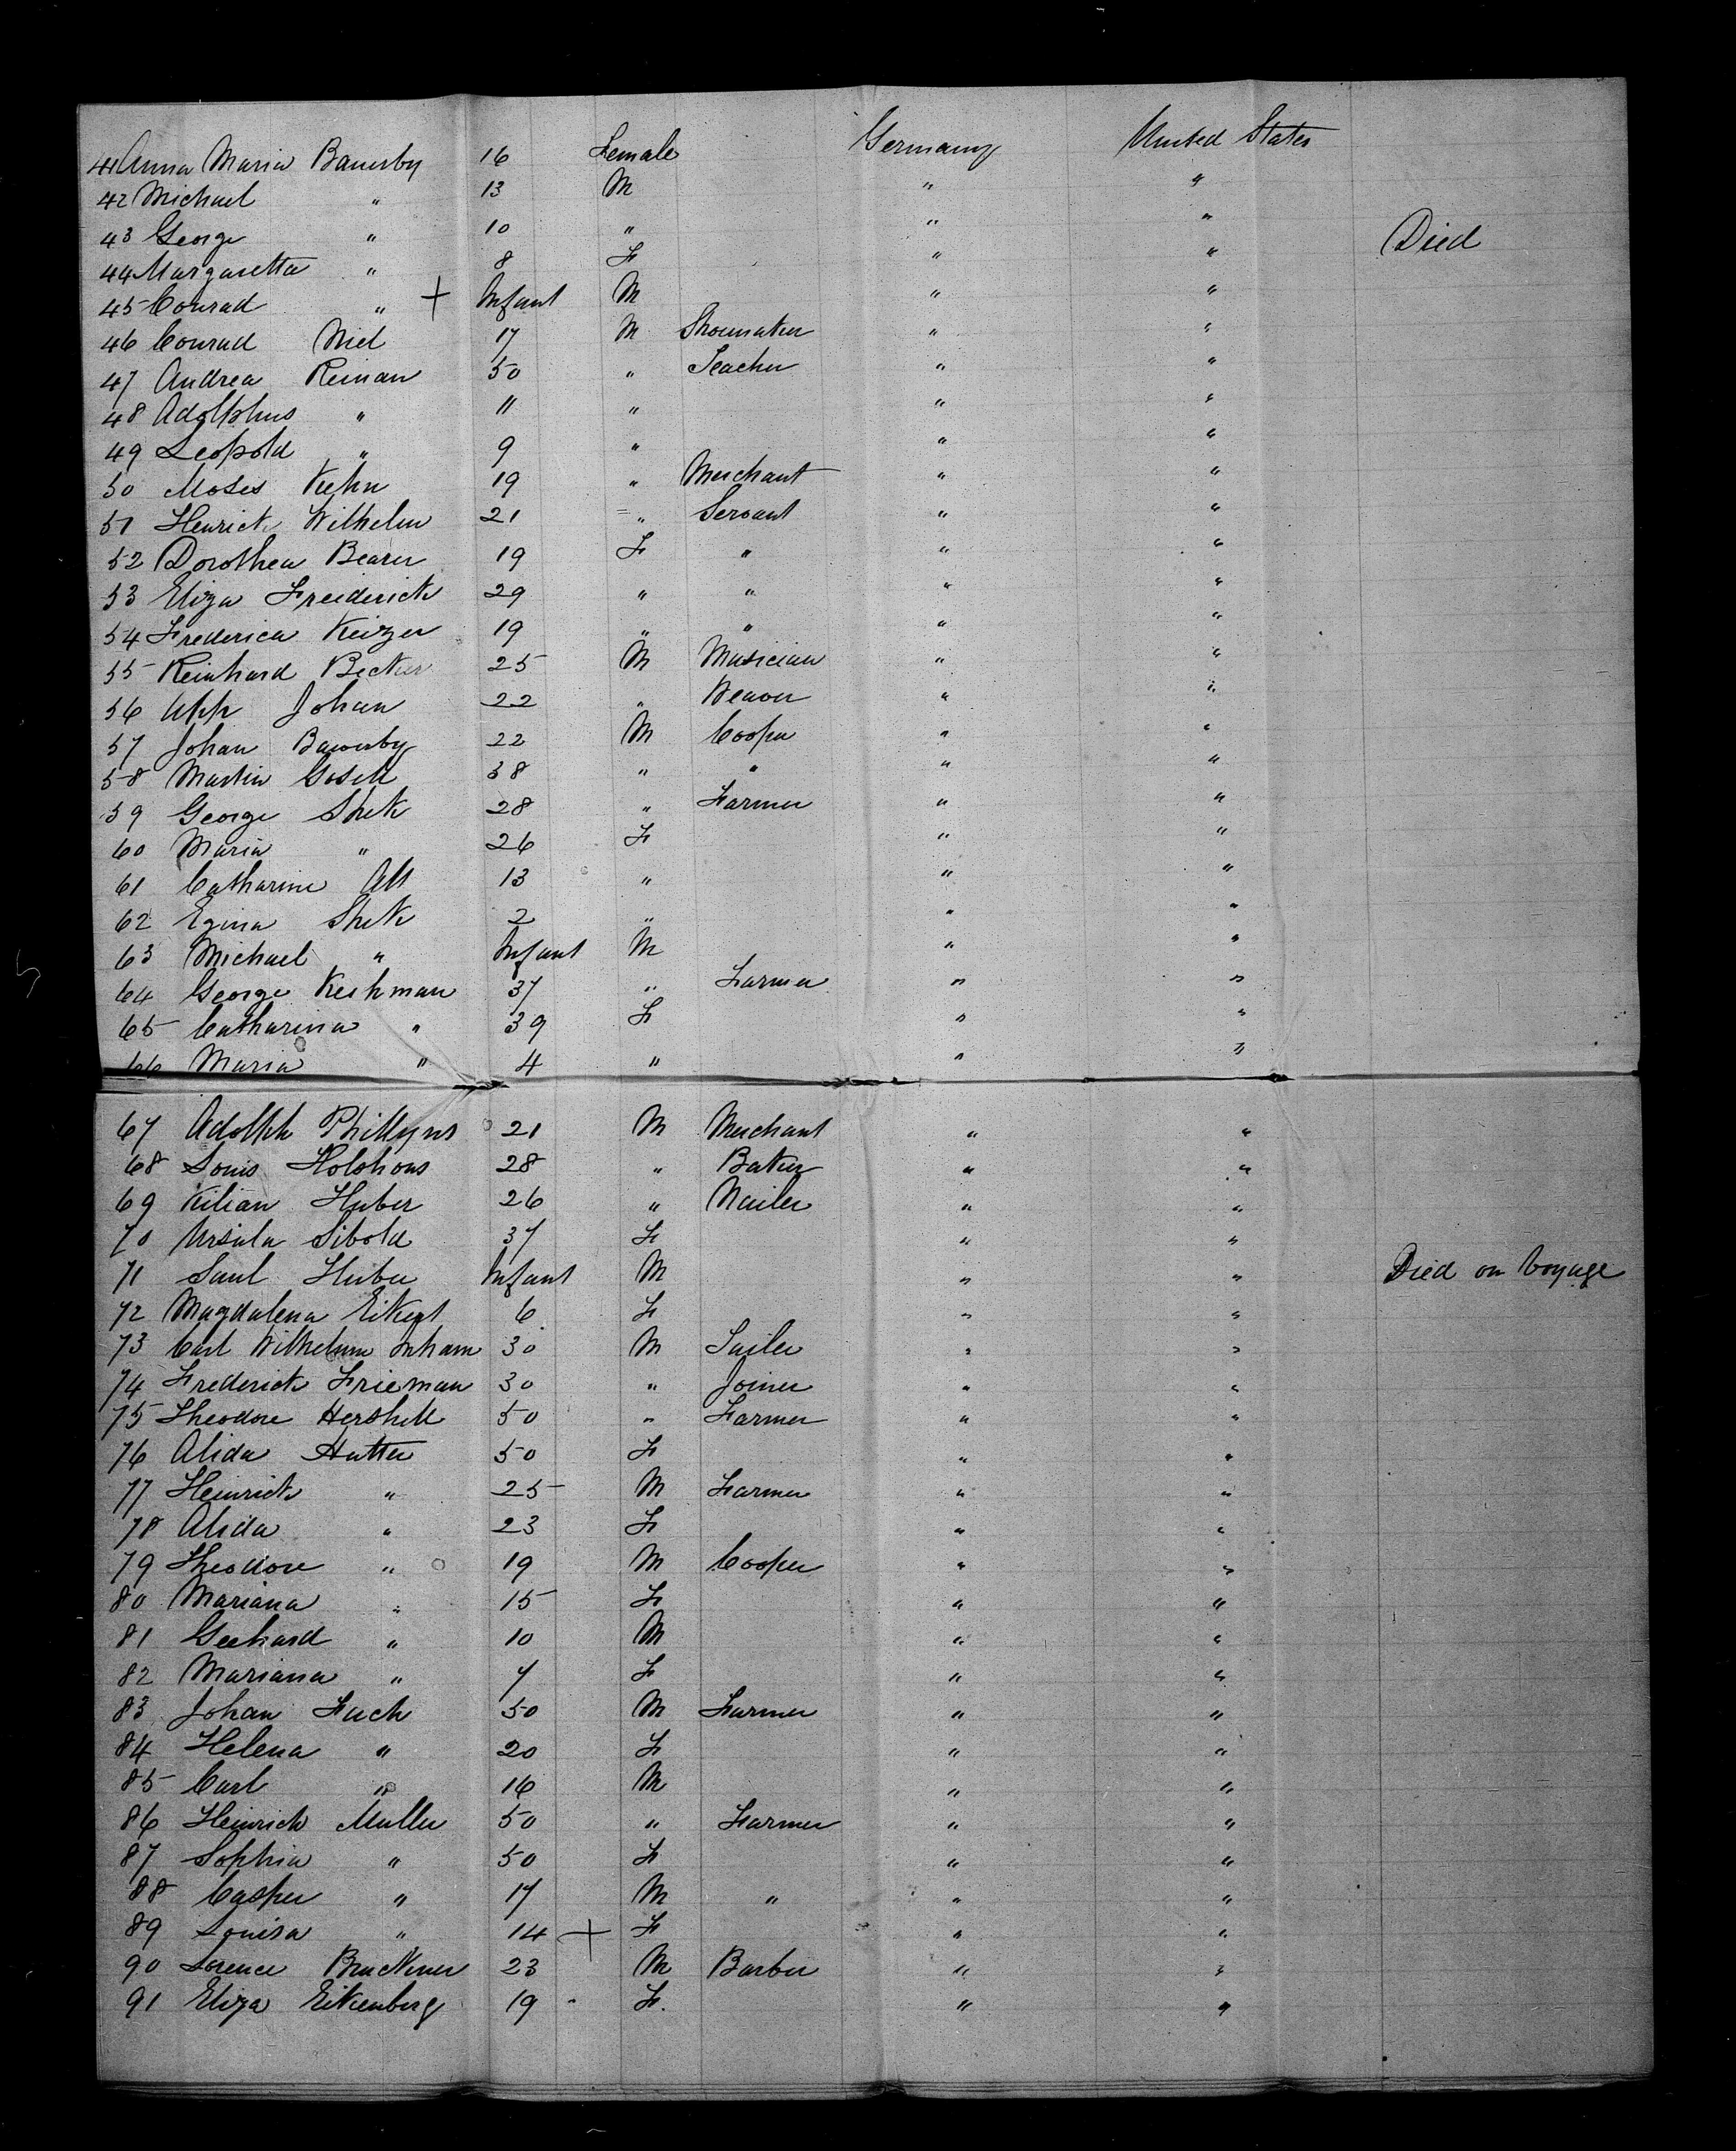 41 Anna Maria Bauersby 16 Female Germany United States
42 Michael " 13 M " "
43 George " 10 " " " Died
44 Margaretta " 8 F " "
45 Conrad " + Infant M " "
46 Conrad Niel 17 M Shoemaker " "
47 Andrea Reinan 50 " Teacher " "
48 Adolphus " 11 " " "
49 Leopold " 9 " " "
50 Moses Kehn 19 " Merchant " "
51 Henrick Wilhelm 21 " Servant " "
52 Dorothea Bearer 19 F " " "
53 Eliza Freiderick 29 " " " "
54 Frederica Keizer 19 " " " "
55 Reinhard Becker 25 M Musician " "
56 Upp Johan 22 " Weaver " "
57 Johan Bauersby 22 M Cooper " "
58 Martin Gosell 38 " " " "
59 George Shek 28 " Farmer " "
60 Maria " 26 F " "
61 Catharine Alt 13 " " "
62 Egina Shek 2 " " "
63 Michael " Infant M " "
64 George Keshman 37 " Farmer " "
65 Catharina " 39 F " "
66 Maria " 4 " " "
67 Adolph Phillyns 21 M Merchant " "
68 Louis Holshous 28 " Baker " "
69 Kilian Huber 26 " Nailer " "
70 Ursula Sibold 37 F " "
71 Saul Huber Infant M " " Died on Voyage
72 Magdalena Eikert 6 F " "
73 Carl Wilhelmm Inham 30 M Sailer " "
74 Frederick Frieman 30 " Joiner " "
75 Theodore Hershell 50 " Farmer " "
76 Alida Hutter 50 F " "
77 Heinrick " 25 M Farmer " "
78 Alida " 23 F " "
79 Theodore " 19 M Cooper " "
80 Mariana " 15 F " "
81 Geehard " 10 M " "
82 Mariana " 7 F " "
83 Johan Fuch 50 M Farmer " "
84 Helena " 20 F " "
85 Carl " 16 M " "
86 Heinrich Muller 50 " Farmer " "
87 Sophia " 50 F " "
88 Casper " 17 M " " "
89 Louisa " 14 + F " "
90 Lorence Bruckner 23 M Barber " "
91 Eliza Eikenberg 19 F. " "